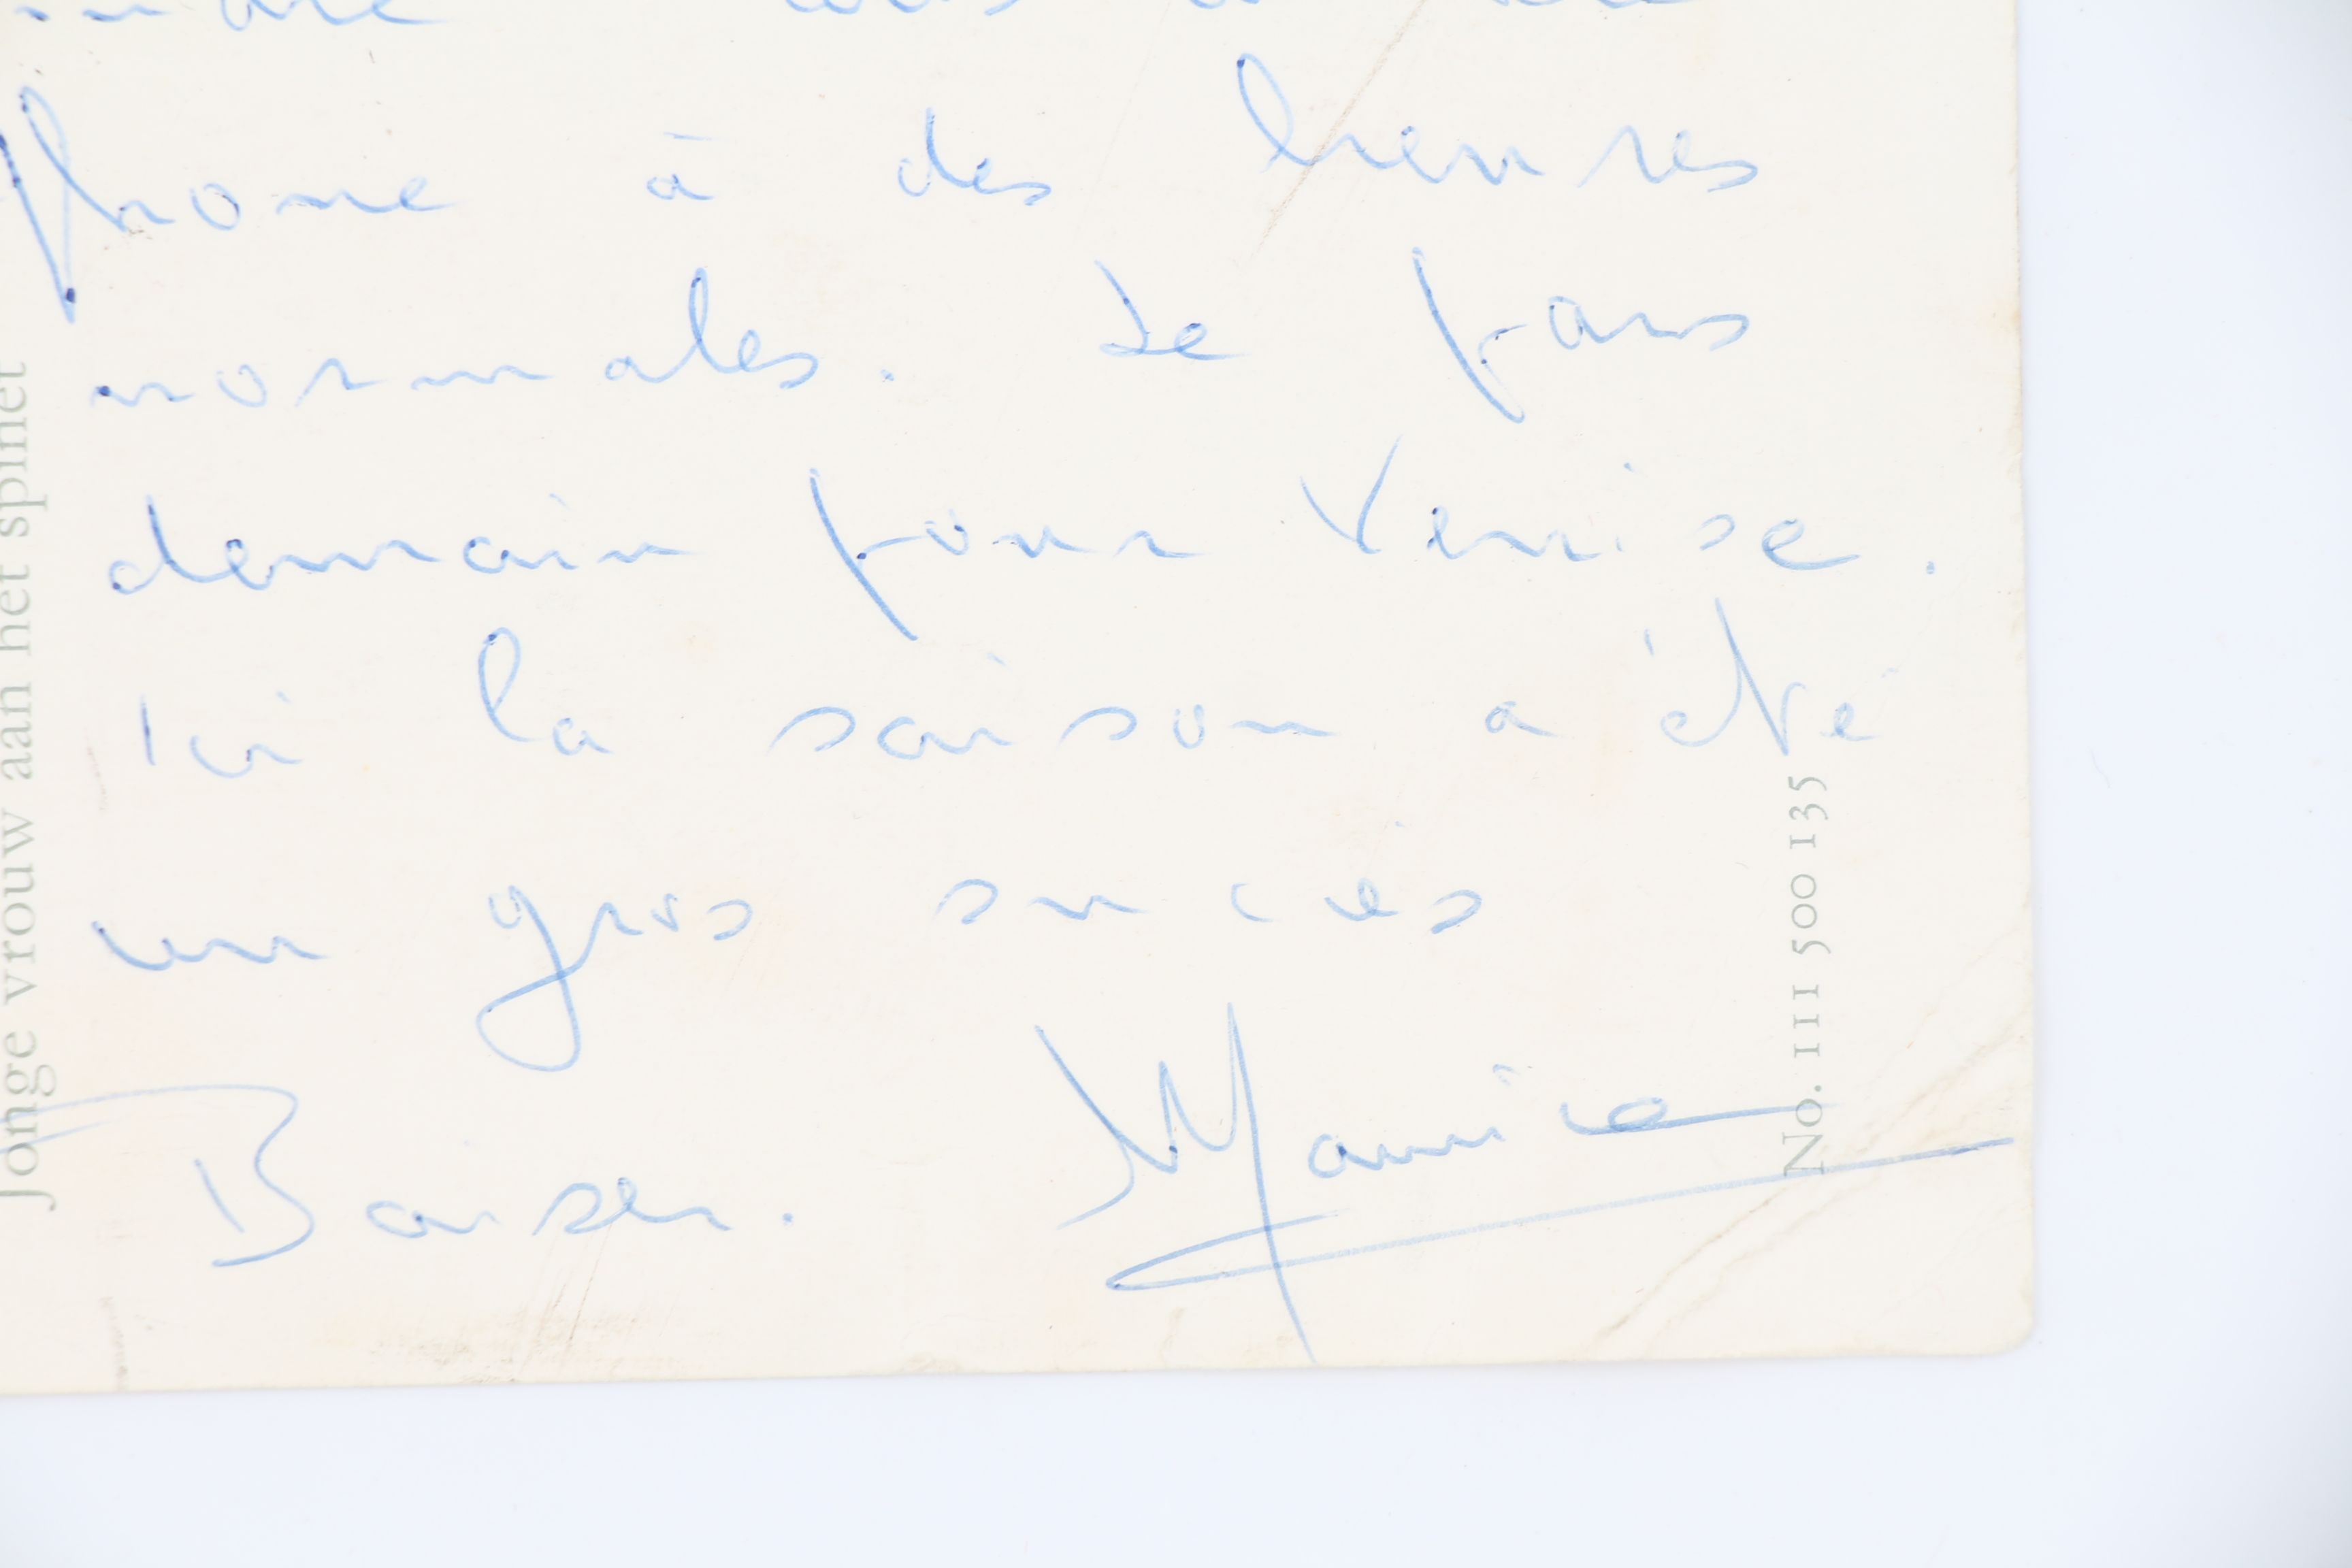 phone à des heures
normales. Je pars
demain pour Venise.
Ici la saison a été
un gros succès
Baiser. Maurice
Jonge vrouw aan het spinet
No. 111 500 135